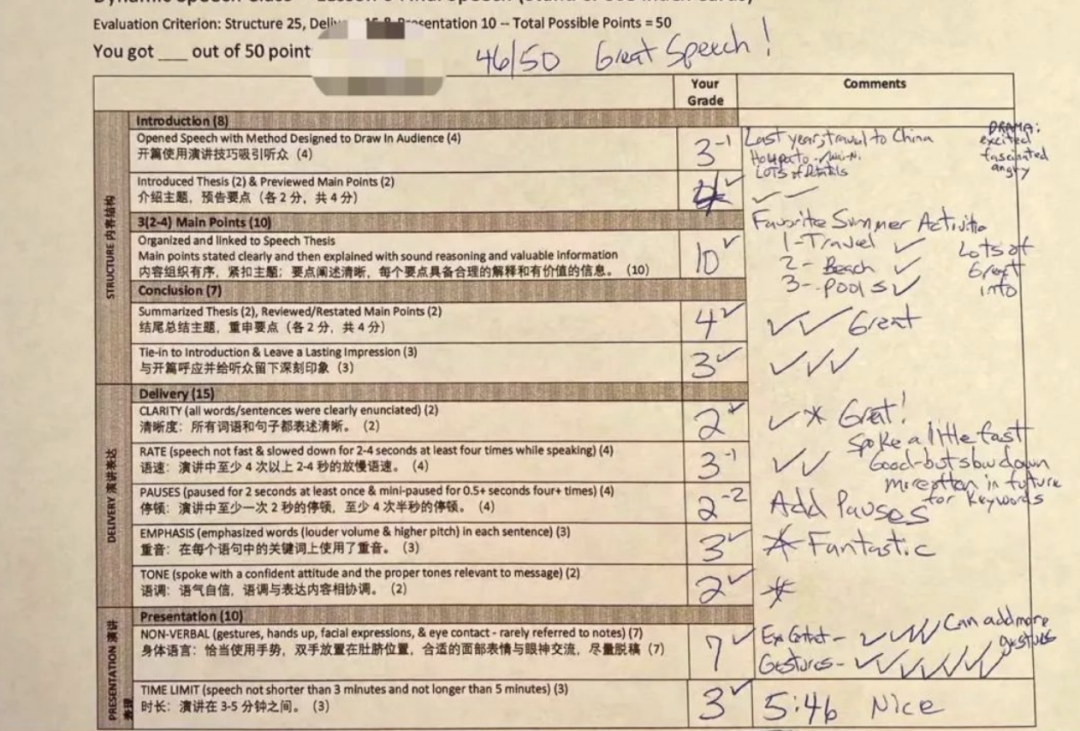 Evaluation Criterion: Structure 25, 15 & Presentation 10 -- Total Possible Points = 50
You got ___ out of 50 point
46/50 Great Speech!
Your Grade
Comments
STRUCTURE 内容结构
Introduction (8)
Opened Speech with Method Designed to Draw In Audience (4)
开篇使用演讲技巧吸引听众 (4)
3 -1
Last year, travel to China
LOTS of Details
DRAMA:
excited
fascinated
angry
Introduced Thesis (2) & Previewed Main Points (2)
介绍主题，预告要点（各 2 分，共 4 分）
4 ✓
✓ ✓
3(2-4) Main Points (10)
Organized and linked to Speech Thesis
Main points stated clearly and then explained with sound reasoning and valuable information
内容组织有序，紧扣主题；要点阐述清晰，每个要点具备合理的解释和有价值的信息。 (10)
10 ✓
Favorite Summer
1-Travel ✓
2- Beach ✓
3-- pools ✓
Lots of
Great
info
Conclusion (7)
Summarized Thesis (2), Reviewed/Restated Main Points (2)
结尾总结主题，重申要点（各 2 分，共 4 分）
4 ✓
✓ ✓ Great
Tie-in to Introduction & Leave a Lasting Impression (3)
与开篇呼应并给听众留下深刻印象 (3)
3 ✓
✓ ✓ ✓
DELIVERY 演讲表达
Delivery (15)
CLARITY (all words/sentences were clearly enunciated) (2)
清晰度：所有词语和句子都表述清晰。 (2)
2 ✓
✓ * Great!
RATE (speech not fast & slowed down for 2-4 seconds at least four times while speaking) (4)
语速：演讲中至少 4 次以上 2-4 秒的放慢语速。 (4)
3 -1
✓ ✓
Spoke a little fast
Good-but slow down
more often in future
for keywords
PAUSES (paused for 2 seconds at least once & mini-paused for 0.5+ seconds four+ times) (4)
停顿：演讲中至少一次 2 秒的停顿，至少 4 次半秒的停顿。 (4)
2 -2
Add Pauses
EMPHASIS (emphasized words (louder volume & higher pitch) in each sentence) (3)
重音：在每个语句中的关键词上使用了重音。 (3)
3 ✓
* Fantastic
TONE (spoke with a confident attitude and the proper tones relevant to message) (2)
语调：语气自信，语调与表达内容相协调。 (2)
2 ✓
*
PRESENTATION 演讲
Presentation (10)
NON-VERBAL (gestures, hands up, facial expressions, & eye contact - rarely referred to notes) (7)
身体语言：恰当使用手势，双手放置在肚脐位置，合适的面部表情与眼神交流，尽量脱稿 (7)
7 ✓
Eye Contact - ✓ ✓ ✓ ✓
Can add more
gestures
Gestures - ✓ ✓ ✓ ✓ ✓ ✓
TIME LIMIT (speech not shorter than 3 minutes and not longer than 5 minutes) (3)
时长：演讲在 3-5 分钟之间。 (3)
3 ✓
5:46 Nice